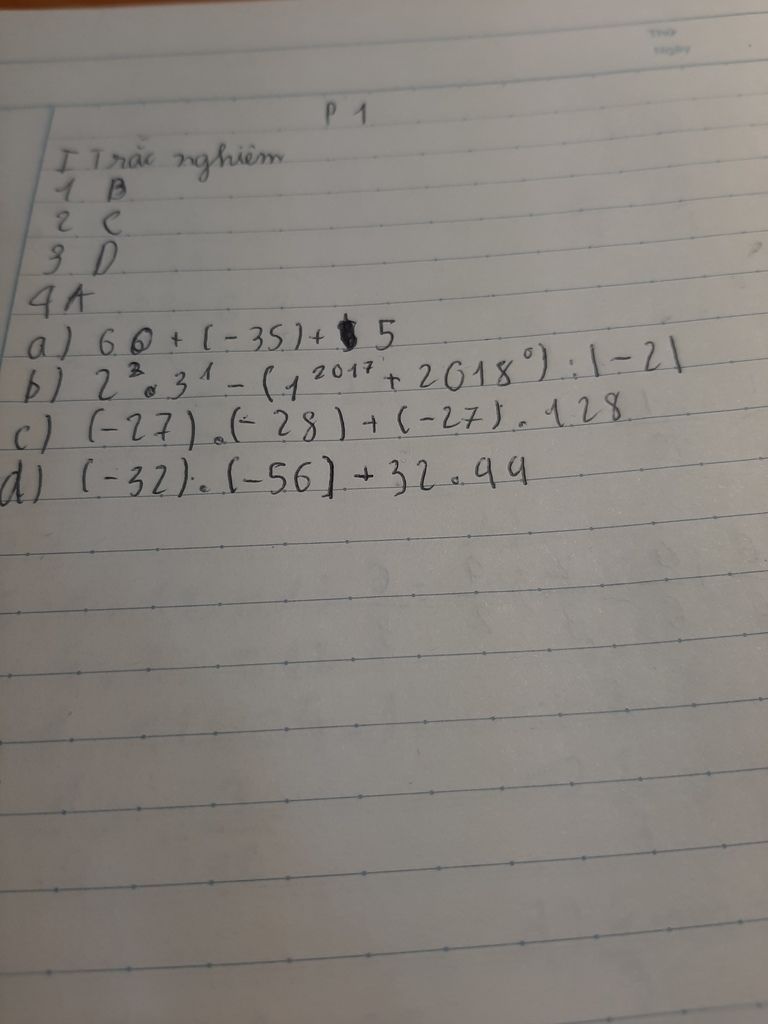 Thứ
Ngày
P 1
I Trắc nghiêm
1 B
2 C
3 D
4 A
a) 60 + (-35) + 5
b) 2² . 3¹ - (1²⁰¹⁷ + 2018⁰) : |-2|
c) (-27) . (-28) + (-27) . 128
d) (-32) . (-56) + 32 . 44